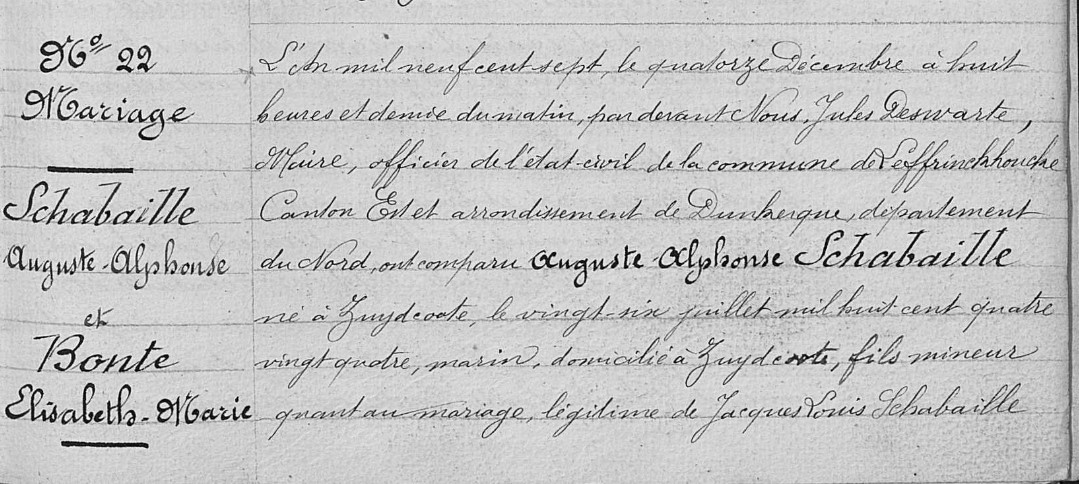 No 22
Mariage
Schabaille
Auguste-Alphonse
et
Bonte
Elisabeth-Marie
L'An mil neuf cent sept, le quatorze Décembre à huit
heures et demie du matin, par devant Nous, Jules Deswarte,
Maire, officier de l'état-civil de la commune de Leffrinckhoucke
Canton Est et arrondissement de Dunkerque, département
du Nord, ont comparu Auguste-Alphonse Schabaille
né à Zuydcoote, le vingt-six juillet mil huit cent quatre
vingt quatre, marin, domicilié à Zuydcoote, fils mineur
quant au mariage, légitime de Jacques Louis Schabaille